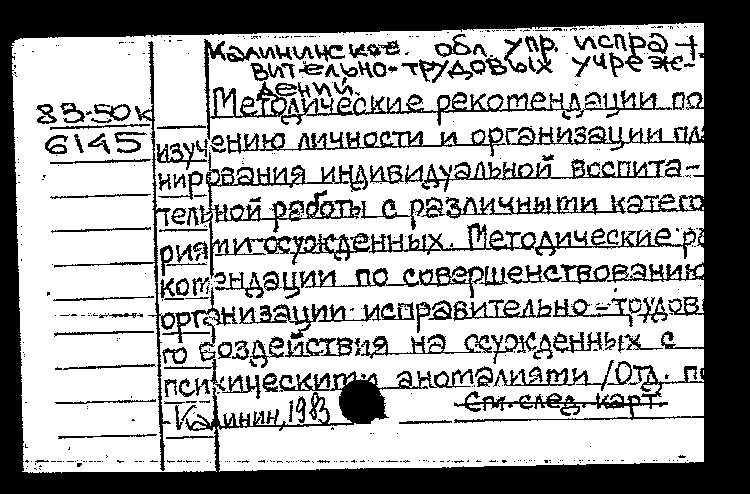 Калининское. обл. упр. испра-
вительно-трудовых учреж-
дений.
83-50к
Методические рекомендации по
6145
изучению личности и организации пла
нирования индивидуальной воспита-
тельной работы с различными катего
риями осужденных. Методические ре
комендации по совершенствованию
организации исправительно-трудово
го воздействия на осужденных с
психическими аномалиями /Отд. по
-Калинин, 1983
См. след. карт.